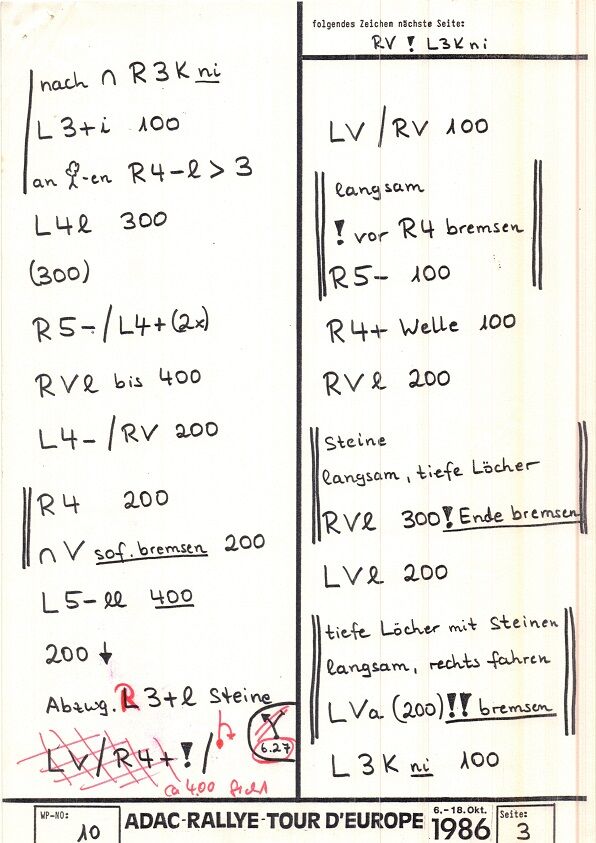 nach ∩ R3K ni
L3+i 100
an -en R4-l > 3
L4l 300
(300)
R5-/L4+(2x)
RVl bis 400
L4-/RV 200
R4 200
∩V sof. bremsen 200
L5-ll 400
200 ↓
Abzwg. R 3+l Steine
LV/R4+!/
6.27
ca 400
folgendes Zeichem nächste Seite:
RV ! L3K ni
LV/RV 100
langsam
! vor R4 bremsen
R5- 100
R4+ Welle 100
RVl 200
Steine
langsam, tiefe Löcher
RVl 300! Ende bremsen
LVl 200
tiefe Löcher mit Steinen
langsam, rechts fahren
LVa (200)!! bremsen
L3K ni 100
WP-NO:
10
ADAC-RALLYE-TOUR D'EUROPE
6.-18.Okt.
1986
Seite:
3